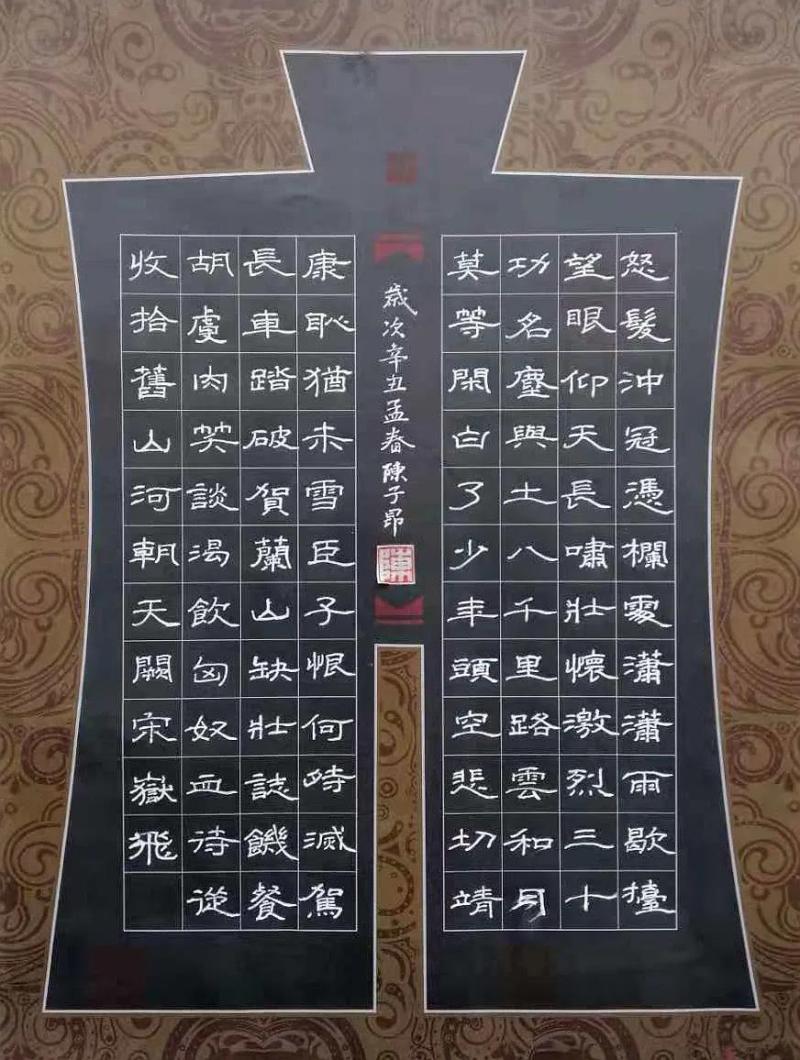 怒髮沖冠憑欄處瀟瀟雨歇擡
望眼仰天長嘯壯懷激烈三十
功名塵與土八千里路雲和月
莫等閑白了少年頭空悲切靖
康恥猶未雪臣子恨何時滅駕
長車踏破賀蘭山缺壯誌饑餐
胡虜肉笑談渴飲匈奴血待從
收拾舊山河朝天闕宋嶽飛
歲次辛丑孟春陳子昂
陳